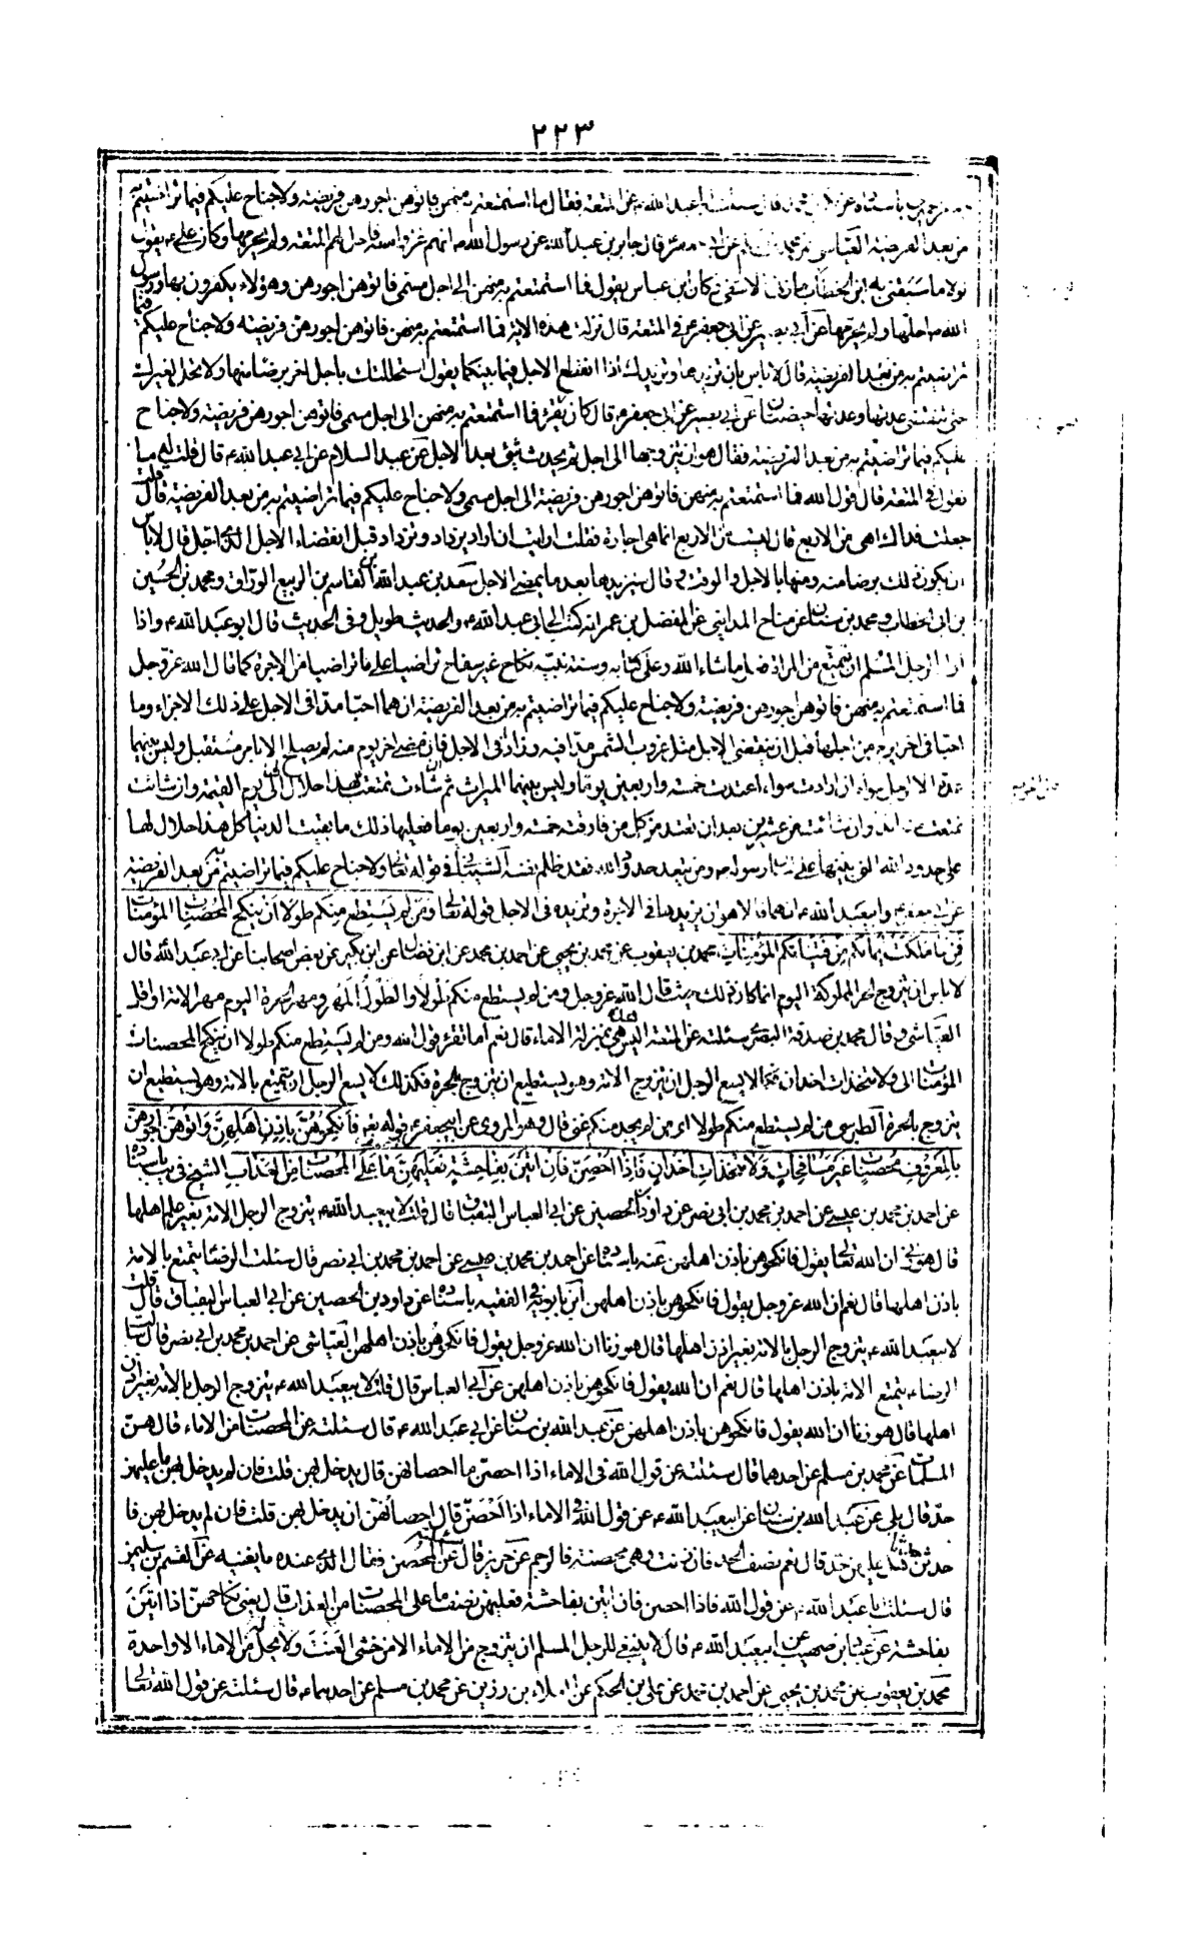 ٢٢٣
عن المتعة فقال ما استمتعتم به منهن فاتوهن اجورهن فريضة ولا جناح عليكم فيما تراضيتم
من بعد الفريضة العياشى عن محمد بن مسلم عن ابى جعفر قال جابر بن عبد الله عن رسول الله ص انهم غزوا معه فاحل لهم المتعة ولم يحرمها وكان على ع يقول
لولا ما سبقنى به ابن الخطاب ما زنا الا شقى وكان ابن عباس يقول فما استمتعتم به منهن الى اجل مسمى فاتوهن اجورهن وهؤلاء يكفرون بها ورسول
الله ص احلها ولم يحرمها عن ابى بصير عن ابى جعفر ع فى المتعة قال نزلت هذه الاية فما استمتعتم به منهن فاتوهن اجورهن فريضة ولا جناح عليكم فيما
تراضيتم به من بعد الفريضة قال لا باس بان تزيدها وتزيدك اذا انقطع الاجل فيما بينكما يقول استحللتك باجل اخر برضا منها ولا تحل لغيرك
حتى تنقضى عدتها وعدتها حيضتان عن ابى بصير عن ابى جعفر ع قال كان يقرء فما استمتعتم به منهن الى اجل مسمى فاتوهن اجورهن فريضة ولا جناح
عليكم فيما تراضيتم به من بعد الفريضة فقال هو ان يتزوجها الى اجل ثم يحدث شيئ بعد الاجل عن عبد السلام عن ابى عبد الله ع قال قلت له ما
تقول فى المتعة قال قول الله فما استمتعتم به منهن فاتوهن اجورهن فريضة الى اجل مسمى ولا جناح عليكم فيما تراضيتم به من بعد الفريضة قال قلت
جعلت فداك اهى من الاربع قال ليست من الاربع انما هى اجارة فقلت ارايت ان اراد ان يزداد وتزداد قبل انقضاء الاجل الذى اجل قال لا باس
ان يكون ذلك برضا منه ومنها بالاجل والوقت وقال سيزيدها بعد ما يمضى الاجل سعد بن عبد الله عن القاسم بن الربيع الوراق ومحمد بن الحسين
بن ابى الخطاب ومحمد بن سنان عن مياح المداينى عن المفضل بن عمر انه كتب الى ابى عبد الله ع والحديث طويل وفى الحديث قال ابو عبد الله ع واذا
اراد الرجل المسلم ان يتمتع من المراة فعل ما شاء الله وعلى كتابه وسنة نبيه نكاح غير سفاح تراضيا على ما تراضيا من الاجرة كما قال الله عز وجل
فما استمتعتم به منهن فاتوهن اجورهن فريضة ولا جناح عليكم فيما تراضيتم به من بعد الفريضة ان هما احبا مدا فى الاجل على ذلك الاجر او ما
احبا فى اخر يوم من اجلها قبل ان ينقضى الاجل مثل غروب الشمس مدا فيه وزادا فى الاجل فان مضى اخر يوم منه لم يصلح الا بامر مستقبل وليس بينهما
عدة الا لرجل سواه ان ارادت سواه اعتدت خمسة واربعين يوما وليس بينهما الميراث ثم ان شاءت تمتعت من اخر فهذا حلال الى يوم القيمة وان شائت
تمتعت منه ابدا وان شائت من عشرين بعد ان تعتد من كل من فارقته خمسة واربعين يوما فعليها ذلك ما بقيت الدنيا كل هذا حلال لها
على حدود الله التى بينها على لسان رسوله ص ومن يتعد حدود الله فقد ظلم نفسه الشيبانى فى قوله تعالى ولا جناح عليكم فيما تراضيتم به من بعد الفريضة
عن ابى جعفر وابى عبد الله ع انهما قالا هو ان يزيدها فى الاجرة وتزيده فى الاجل قوله تعالى ومن لم يستطع منكم طولا ان ينكح المحصنات المؤمنات
فمن ما ملكت ايمانكم من فتياتكم المؤمنات محمد بن يعقوب عن محمد بن يحيى عن احمد بن محمد عن ابن فضال عن ابن بكير عن بعض اصحابنا عن ابى عبد الله قال
لا باس ان يتزوج الحر المملوكة اليوم انما كان ذلك حيث قال الله عز وجل ومن لم يستطع منكم طولا والطول المهر ومهر الحرة اليوم مهر الامة او اقل
العياشى وقال محمد بن صدقة البصرى سئلته عن المتعة اليس هى بمنزلة الاماء قال نعم اما تقرء قول الله ومن لم يستطع منكم طولا ان ينكح المحصنات
المؤمنات الى ولا متخذات اخدان فكما لا يسع الرجل ان يتزوج الامة وهو يستطيع ان يتزوج بالحرة فكذلك لا يسع الرجل ان يتمتع بالامة وهو يستطيع ان
يتزوج بالحرة الطبرسى من لم يستطع منكم طولا اى من لم يجد منكم غنى قال وهو المروى عن ابى جعفر ع قوله تع فانكحوهن باذن اهلهن واتوهن اجورهن
بالمعروف محصنات غير مسافحات ولا متخذات اخدان فاذا احصن فان اتين بفاحشة فعليهن نصف ما على المحصنات من العذاب الشيخ فى يب باسناده
عن احمد بن محمد بن عيسى عن احمد بن محمد بن ابى نصر عن داود بن الحصين عن ابى العباس البقباق قال قلت لابى عبد الله ع يتزوج الرجل الامة بغير علم اهلها
قال هو زنى ان الله تعالى يقول فانكحوهن باذن اهلهن عنه باسناده عن احمد بن محمد بن عيسى عن احمد بن محمد بن ابى نصر قال سئلت الرضا يتمتع بالامة
باذن اهلها قال نعم ان الله عز وجل يقول فانكحوهن باذن اهلهن ابن بابويه فى الفقيه باسناده عن داود بن الحصين عن ابى العباس البقباق قال قلت
لابى عبد الله ع يتزوج الرجل بالامة بغير اذن اهلها قال هو زنا ان الله عز وجل يقول فانكحوهن باذن اهلهن العياشى عن احمد بن محمد بن ابى نصر قال سالت
الرضا ع يتمتع الامة باذن اهلها قال نعم ان الله يقول فانكحوهن باذن اهلهن عن ابى العباس قال قلت لابى عبد الله ع يتزوج الرجل بالامة بغير اذن
اهلها قال هو زنا ان الله يقول فانكحوهن باذن اهلهن عن عبد الله بن سنان عن ابى عبد الله ع قال سئلته عن المحصنات من الاماء قال هن
المسلمات عن محمد بن مسلم عن احدهما قال سئلته عن قول الله فى الاماء اذا احصن ما احصانهن قال يدخل بهن قلت فان لم يدخل بهن ما عليهن
حد قال بلى عن عبد الله بن سنان عن ابى عبد الله ع عن قول الله فى الاماء اذا احصن قال احصانهن ان يدخل بهن قلت فان لم يدخل بهن فا
حدثن حدثا هل عليهن حد قال نعم نصف الحد فان زنت وهى محصنة فالرجم عن حريز قال سئلته عن المحصن فقال الذى عنده ما يغنيه عن القسم بن سليمن
قال سئلت ابا عبد الله ع عن قول الله فاذا احصن فان اتين بفاحشة فعليهن نصف ما على المحصنات من العذاب قال يعنى نكاحهن اذا اتين
بفاحشة عن عباد بن صهيب عن ابى عبد الله ع قال لا ينبغى للرجل المسلم ان يتزوج من الاماء الا من خشى العنت ولا يحل له من الاماء الا واحدة
محمد بن يعقوب عن محمد بن يحيى عن احمد بن محمد عن على بن الحكم عن العلاء بن رزين عن محمد بن مسلم عن احدهما ع قال سئلته عن قول الله تعالى